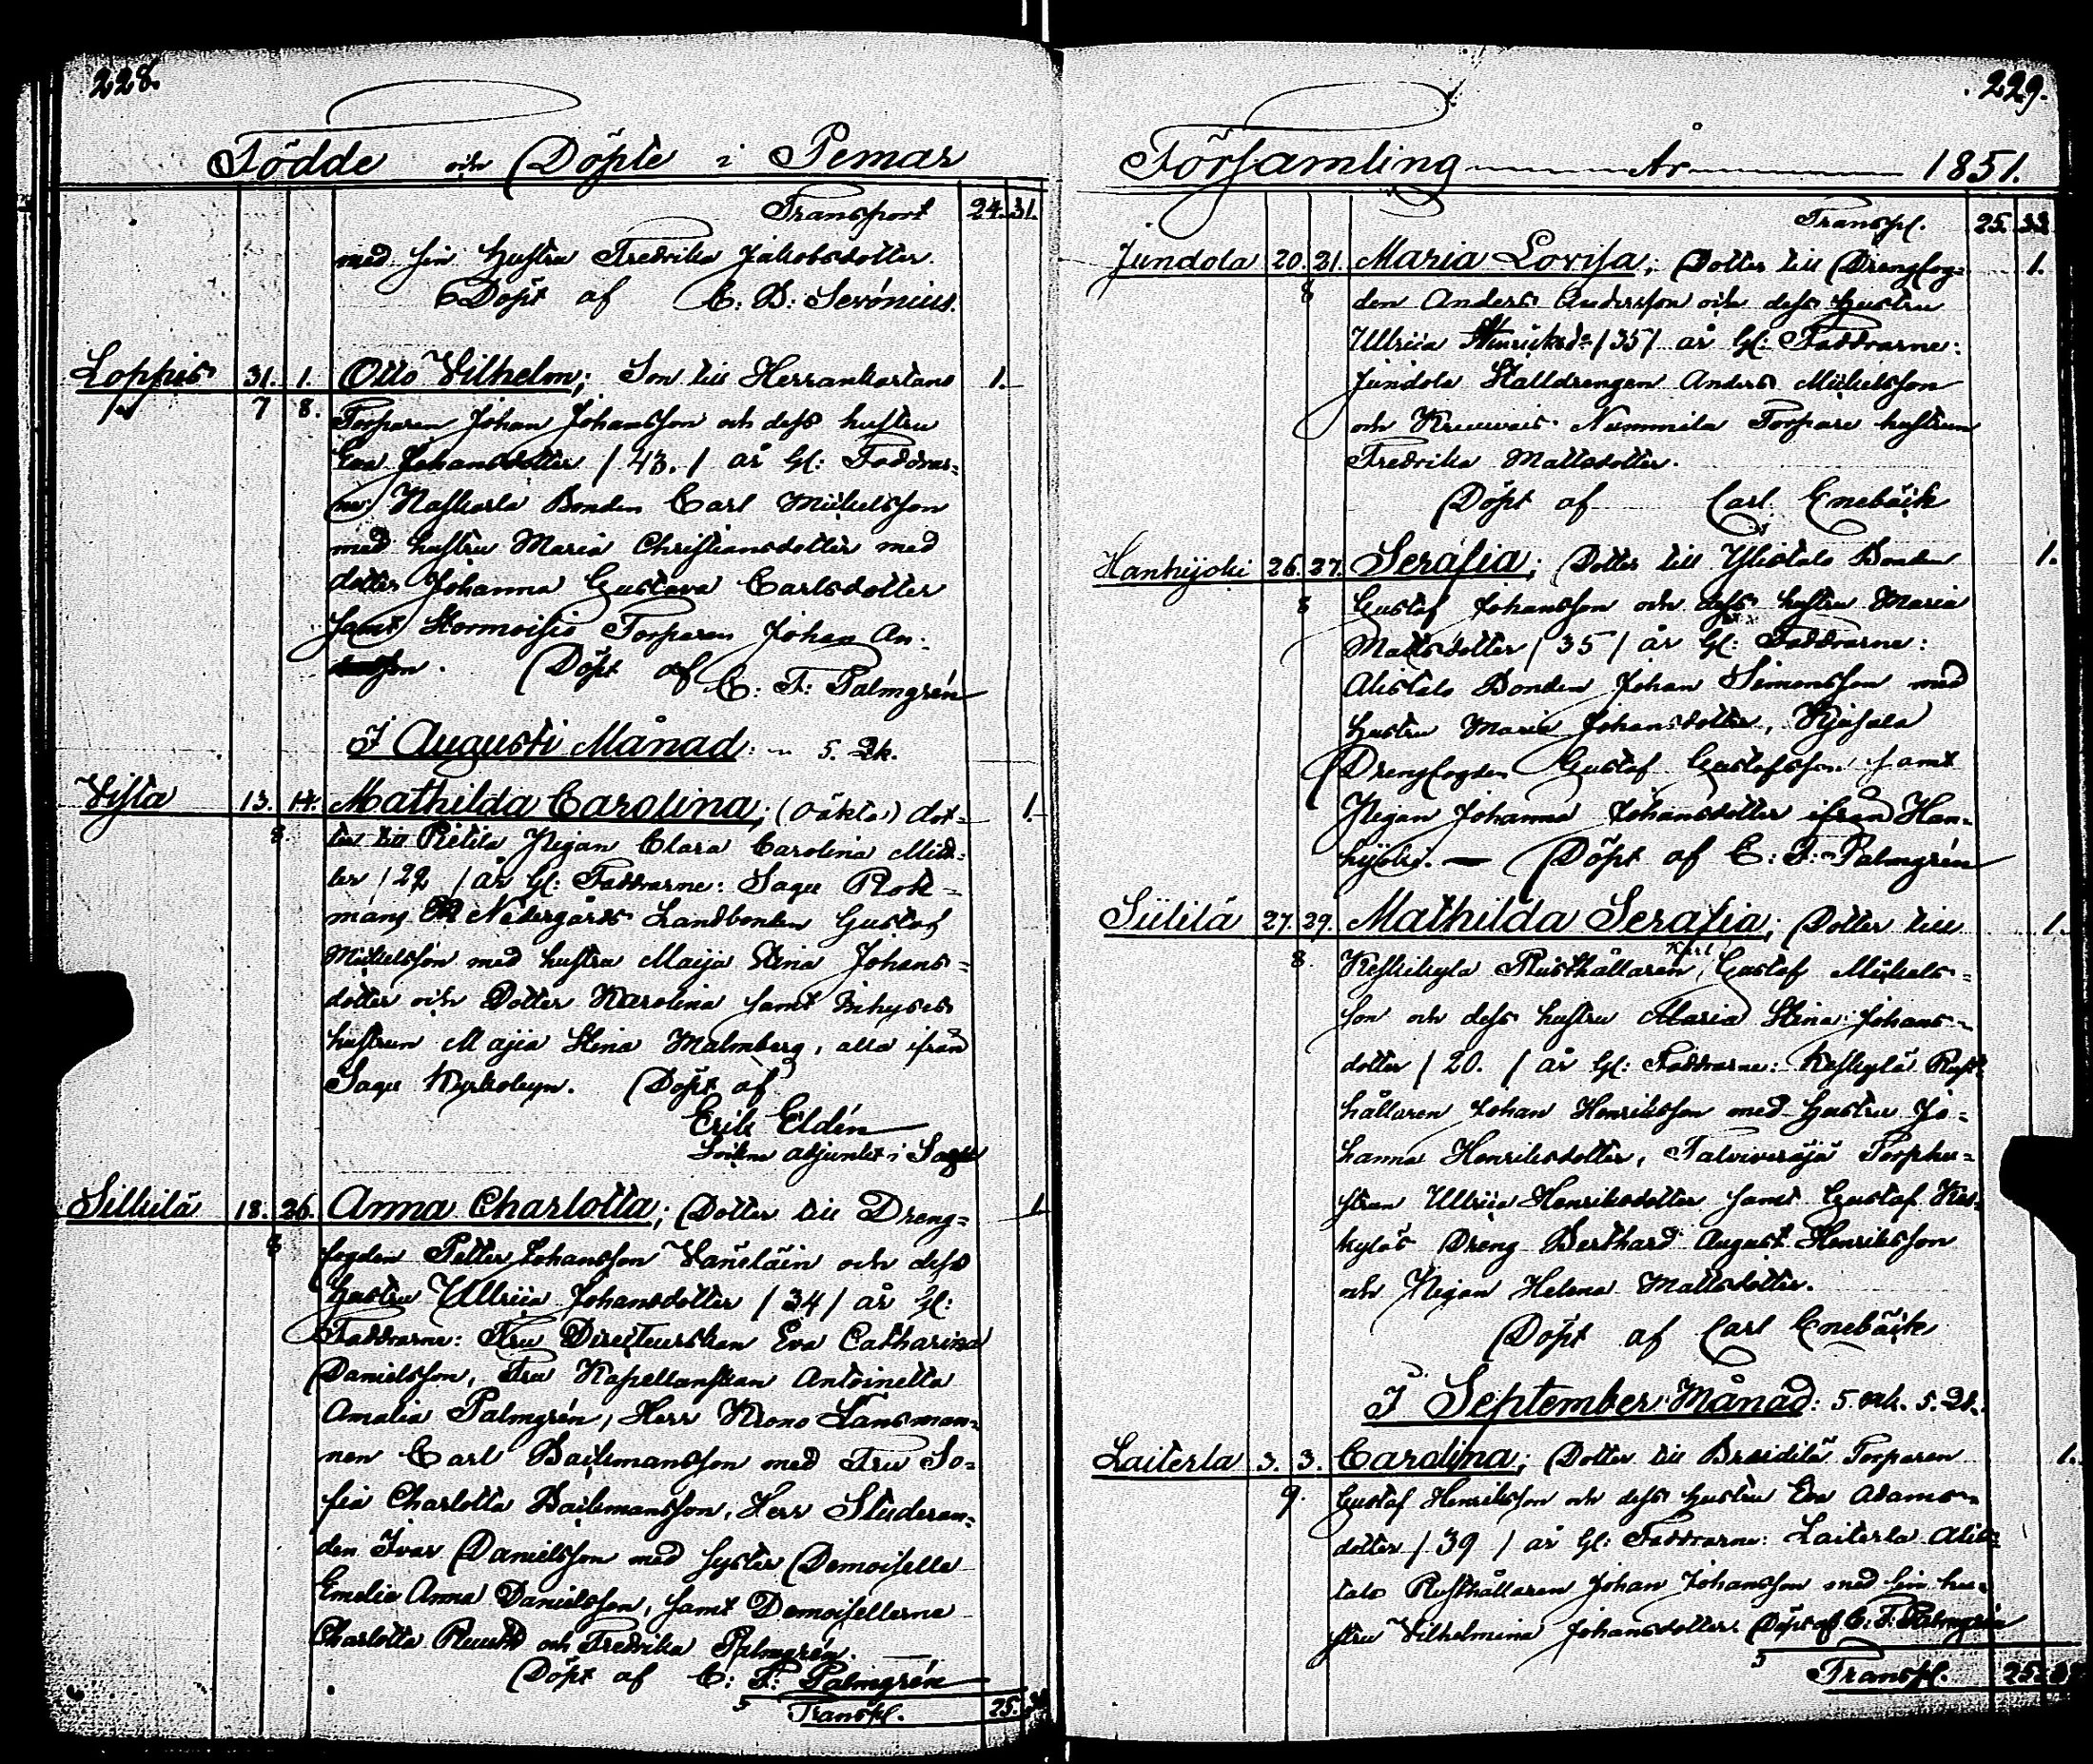 228.
Födde och Döpte i Pemar
Transport 24. 31.
med sin hustru Fredrika Jakobsdotter.
Döpt af C: D: Serónius.
Loppis 31. 1. Otto Vilhelm; Son till Herrankartano 1.
7 8. Torparen Johan Johansson och dess hustru
Eva Johansdotter / 43. / år gl: Faddrar-
ne: Naskarla Bonden Carl Mickelsson
med hustru Maria Christiansdotter med
dotter Johanna Gustava Carlsdotter
samt Stormoisio Torparen Johan An-
Döpt af C: F: Palmgrén
I Augusti Månad: 5. 2k.
Vista 13. 14. Mathilda Carolina; (oäkta) dot- 1.
8. ter till Pietilä Pigan Clara Carolina
/ 22 / år gl: Faddrarne: Sagu
Nedergårds Landbonden Gustaf
Mickelsson med hustru Maija Stina Johans-
dotter och Dotter Karolina samt Inhyses
hustrun Majia Stina Malmberg, alla ifrån
Sagu Kyrkobyn. Döpt af
Erik Eldén
adjunkt i Sagu
Silkilä 18. 26. Anna Charlotta; Dotter till Dreng- 1.
8 fogden Petter Johansson och dess
Hustru Ullriia Johansdotter / 34 / år gl:
Faddrarne: Fru Directeurskan Eva Catharina
Danielsson, Fru Kapellanskan Antoinetta
Amalia Palmgrén, Herr Krono Länsman-
nen Carl Backmansson med Fru So-
fia Charlotta Backmansson, Herr Studeran-
den Ivar Danielsson med syster Demoiselle
Emelie Anna Danielsson, samt Demoisellerne
Charlotta och Fredrika Palmgrén.
Döpt af C: F: Palmgrén
Transpt. 25.
229.
Församling År 1851.
Transpt. 25. 33.
Jundola 20. 21. Maria Lovisa; Dotter till Drengfog- 1.
8 den Anders Andersson och dess hustru
Ullriia Henricksdr / 35 / år gl: Faddrarne:
Jundola Stalldrengen Anders Mickelsson
och Nummila Torpare hustrun
Fredrika Mattsdotter.
Döpt af Carl Enebäck
Hanhijoki 26. 27. Serafia; Dotter till Ylistalo Bonden 1.
8 Gustaf Johansson och dess hustru Maria
Mattsdotter / 35 / år gl: Faddrarne:
Alistalo Bonden Johan Simonsson med
hustru Maria Johansdotter,
Drengfogden Gustaf Gustafsson samt
Pigan Johanna Johansdotter ifrån Han-
hijoki. — Döpt af C: F: Palmgrén
Siililä 27. 29. Mathilda Serafia; Dotter till 1.
8. Keskikyla Rusthållaren Karl Gustaf Mickels-
son och dess hustru Maria Stina Johans-
dotter / 20. / år gl: Faddrarne: Keskkylä Rust-
hållaren Johan Henriksson med Hustru Jo-
hanna Henriksdotter, Torphu-
strun Ullriia Henriksdotter samt Gustaf Kes-
kyläs Dreng Berthard August Henriksson
och Pigan Helena Mattsdotter.
Döpt af Carl Enebäck
I September Månad: 5. mk. 5. 2k.
Laiterla 3. 3. Carolina; Dotter till Torparen 1.
9. Gustaf Henriksson och dess hustru Eva Adams-
dotter / 39 / år gl: Faddrarne: Laiterla Alis-
talo Rusthållaren Johan Johansson med sin hu-
stru Vilhelmina Johansdotter. Döpt af C: F: Palmgrén
Transpt. 25.